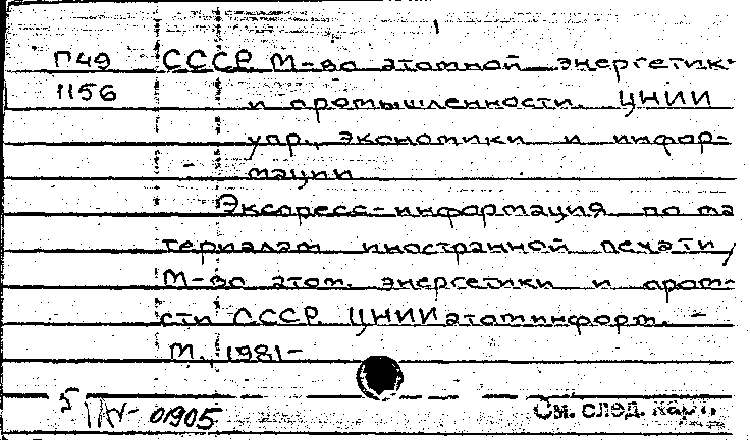 П49 СССР. М-во атомной энергетик-
1156 и промышленности. ЦНИИ
упр., экономики и инфор-
мации
Экспресс-информация по ма
териалам иностранной печати /
М-во атом. энергетики и пром-
сти СССР. ЦНИИатоминформ. -
М., 1981-
01905
См. след. карт.